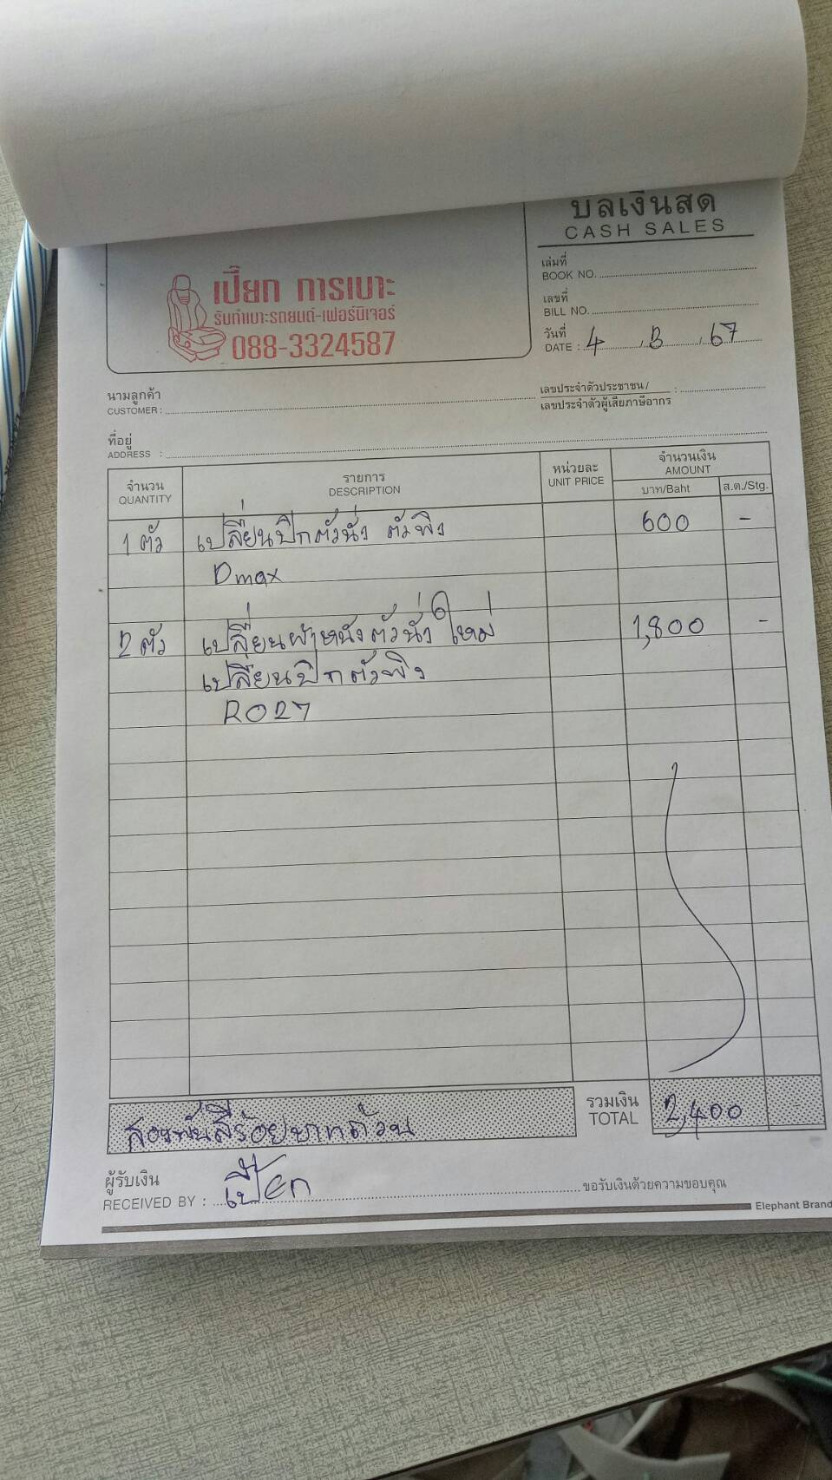 บิลเงินสด
CASH SALES
เปี๊ยก การเบาะ
รับทำเบาะรถยนต์-เฟอร์นิเจอร์
088-3324587
เล่มที่
BOOK NO.
เลขที่
BILL NO.
วันที่
DATE : 4 . 8 . 67
นามลูกค้า
CUSTOMER :
เลขประจำตัวประชาชน/
เลขประจำตัวผู้เสียภาษีอากร :
ที่อยู่
ADDRESS :
จำนวน
QUANTITY
รายการ
DESCRIPTION
หน่วยละ
UNIT PRICE
จำนวนเงิน
AMOUNT
บาท/Baht ส.ต./Stg.
1 ตัว เปลี่ยนปีกตัวนั่ง ตัวพิง 600 -
Dmax
2 ตัว เปลี่ยนผ้าหนังตัวนั่ง ใหม่ 1,800 -
เปลี่ยนปีกตัวพิง
RO27
สองพันสี่ร้อยบาทถ้วน
รวมเงิน
TOTAL 2,400
ผู้รับเงิน
RECEIVED BY : เปี๊ยก ขอรับเงินด้วยความขอบคุณ
Elephant Brand